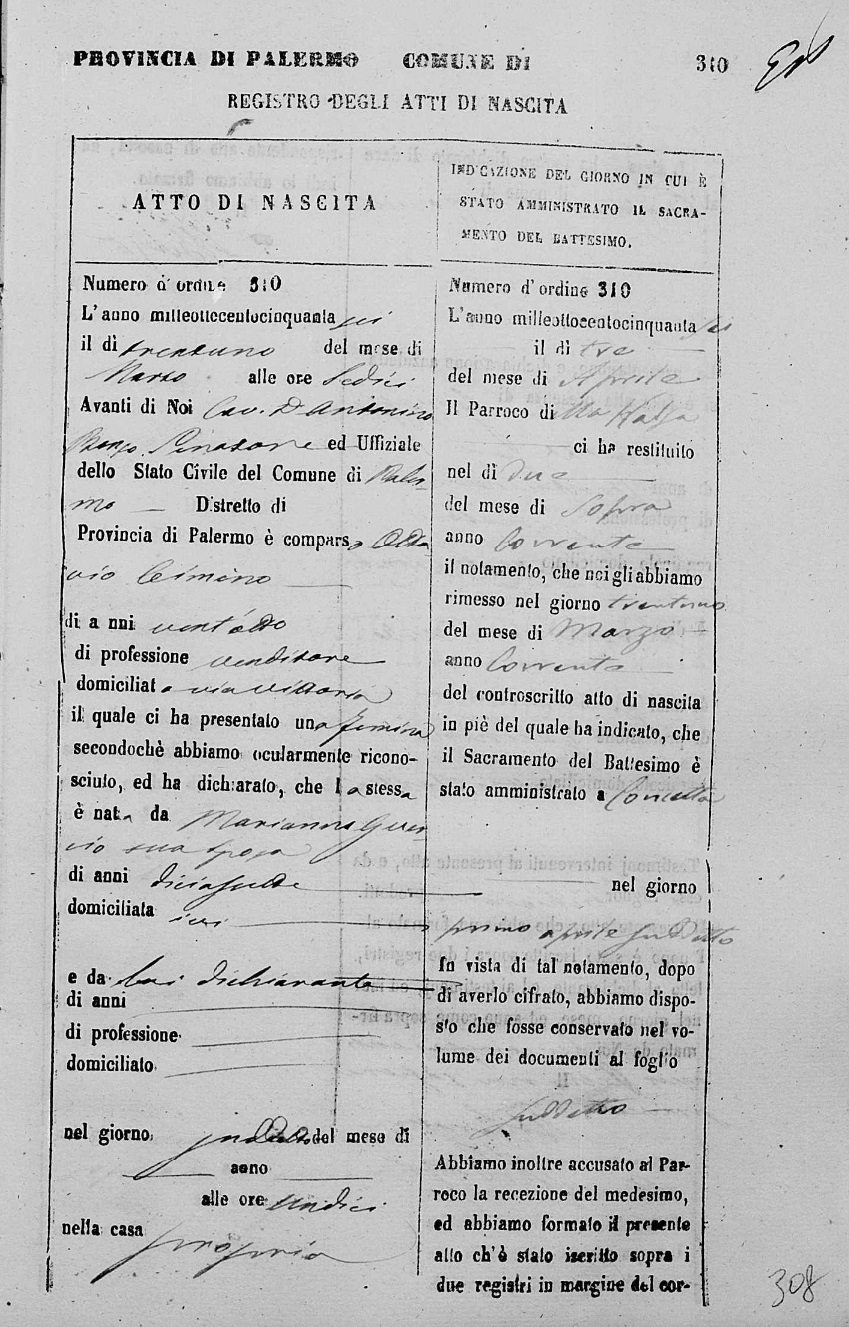 PROVINCIA DI PALERMO COMUNE DI 310
REGISTRO DEGLI ATTI DI NASCITA
ATTO DI NASCITA
Numero d'ordine 310
L'anno milleottocentocinquanta sei
il dì trentuno del mese di
Marzo alle ore Sedici
Avanti di Noi Cav. D. Antonino
Senatore ed Uffiziale
dello Stato Civile del Comune di Paler-
mo Distretto di
Provincia di Palermo è comparso Otta
vio Cimino
di anni vent'otto
di professione venditore
domiciliato via Vittoria
il quale ci ha presentato una femina
secondochè abbiamo ocularmente ricono-
sciuto, ed ha dichiarato, che la stessa
è nata da Marianna
sua sposa
di anni diciasette
domiciliata ivi
e da lui dichiarante
di anni
di professione
domiciliato
nel giorno suddetto del mese di
anno
alle ore undici
nella casa
propria
INDICAZIONE DEL GIORNO IN CUI È
STATO AMMINISTRATO IL SACRA-
MENTO DEL BATTESIMO.
Numero d'ordine 310
L'anno milleottocentocinquanta sei
il dì tre
del mese di Aprile
Il Parroco di lla Kalsa
ci ha restituito
nel dì due
del mese di Sopra
anno Corrente
il notamento, che noi gli abbiamo
rimesso nel giorno trentuno
del mese di Marzo
anno Corrente
del controscritto atto di nascita
in piè del quale ha indicato, che
il Sacramento del Battesimo è
stato amministrato a Concetta
nel giorno
primo aprile suddetto
In vista di tal notamento, dopo
di averlo cifrato, abbiamo dispo-
sto che fosse conservato nel vo-
lume dei documenti al foglio
suddetto
Abbiamo inoltre accusato al Par-
roco la recezione del medesimo,
ed abbiamo formato il presente
atto ch'è stato iscritto sopra i
due registri in margine del cor-
308